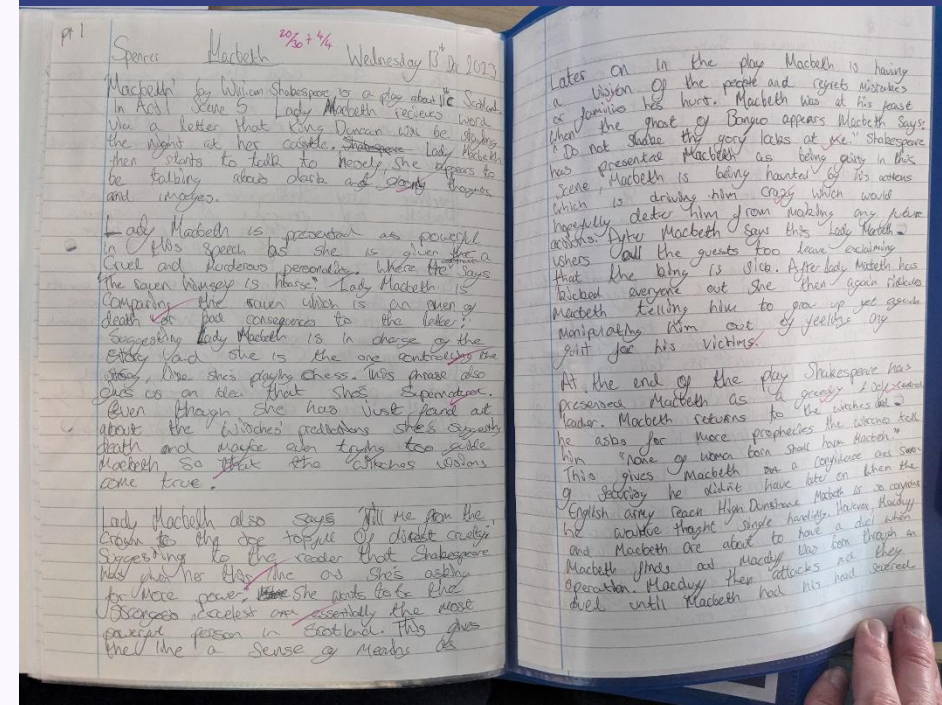 pt 1
20/30 + 4/4
Spencer Macbeth Wednesday 13th Dec 2023
'Macbeth' by William Shakespeare is a play about 11C Scotland.
In Act 1 Scene 5 Lady Macbeth recieves word
via a letter that King Duncan will be staying
the night at her castle. Shakespeare Lady Macbeth
then starts to talk to herself, she appears to
be talking about dark and thoughts
and images.
Lady Macbeth is presented as powerful
in this speech as she is given the a
Cruel and Murderous personality. Where he says
"The raven himself is hoarse" Lady Macbeth is
Comparing the raven which is an omen of
death or bad consequences to the letter,
Suggesting Lady Macbeth is in charge of the
story and she is the one controlling the
story, like she's playing chess. This phrase also
gives us an idea that she's Supernatural.
Even though she has just found out
about the witches' predictions she's suggesting
death and maybe even trying too guide
Macbeth so that the witches visions
come true.
Lady Macbeth also says "fill me from the
crown to the toe topfull Of direst cruelty"
Suggesting to the reader that Shakespeare
has given her this line as she's asking
for more power, She wants to be the
and essentially the most
powerful person in Scotland. This gives
the line a sense of as
Later on in the play Macbeth is having
a vision Of the people and regrets mistakes
or families he's hurt. Macbeth was at his feast
when the ghost of Banquo appears Macbeth says:
"Do not shake thy gory locks at me." Shakespeare
has presented Macbeth as being in this
scene, Macbeth is being haunted by his actions
which is driving him crazy which would
hopefully deter him from making any future
actions. After Macbeth says this Lady Macbeth
ushers all the guests too leave exclaiming
that the king is sick. After Lady Macbeth has
kicked everyone out she then again ridicules
Macbeth telling him to grow up yet again
manipulating him out of feeling any
guilt for his victims.
At the end of the play Shakespeare has
presented Macbeth as a greedy &
leader. Macbeth returns to the witches and
he asks for more prophecies the witches tell
him "none of woman born shall harm Macbeth."
This gives Macbeth a confidence and sense
of security he didn't have later on when the
English army reach High Dunsinane Macbeth is so
he thought single handedly. However Macduff
and Macbeth are about to have a duel when
Macbeth finds out Macduff was born through an
operation. Macduff then attacks and they
duel until Macbeth had his head severed